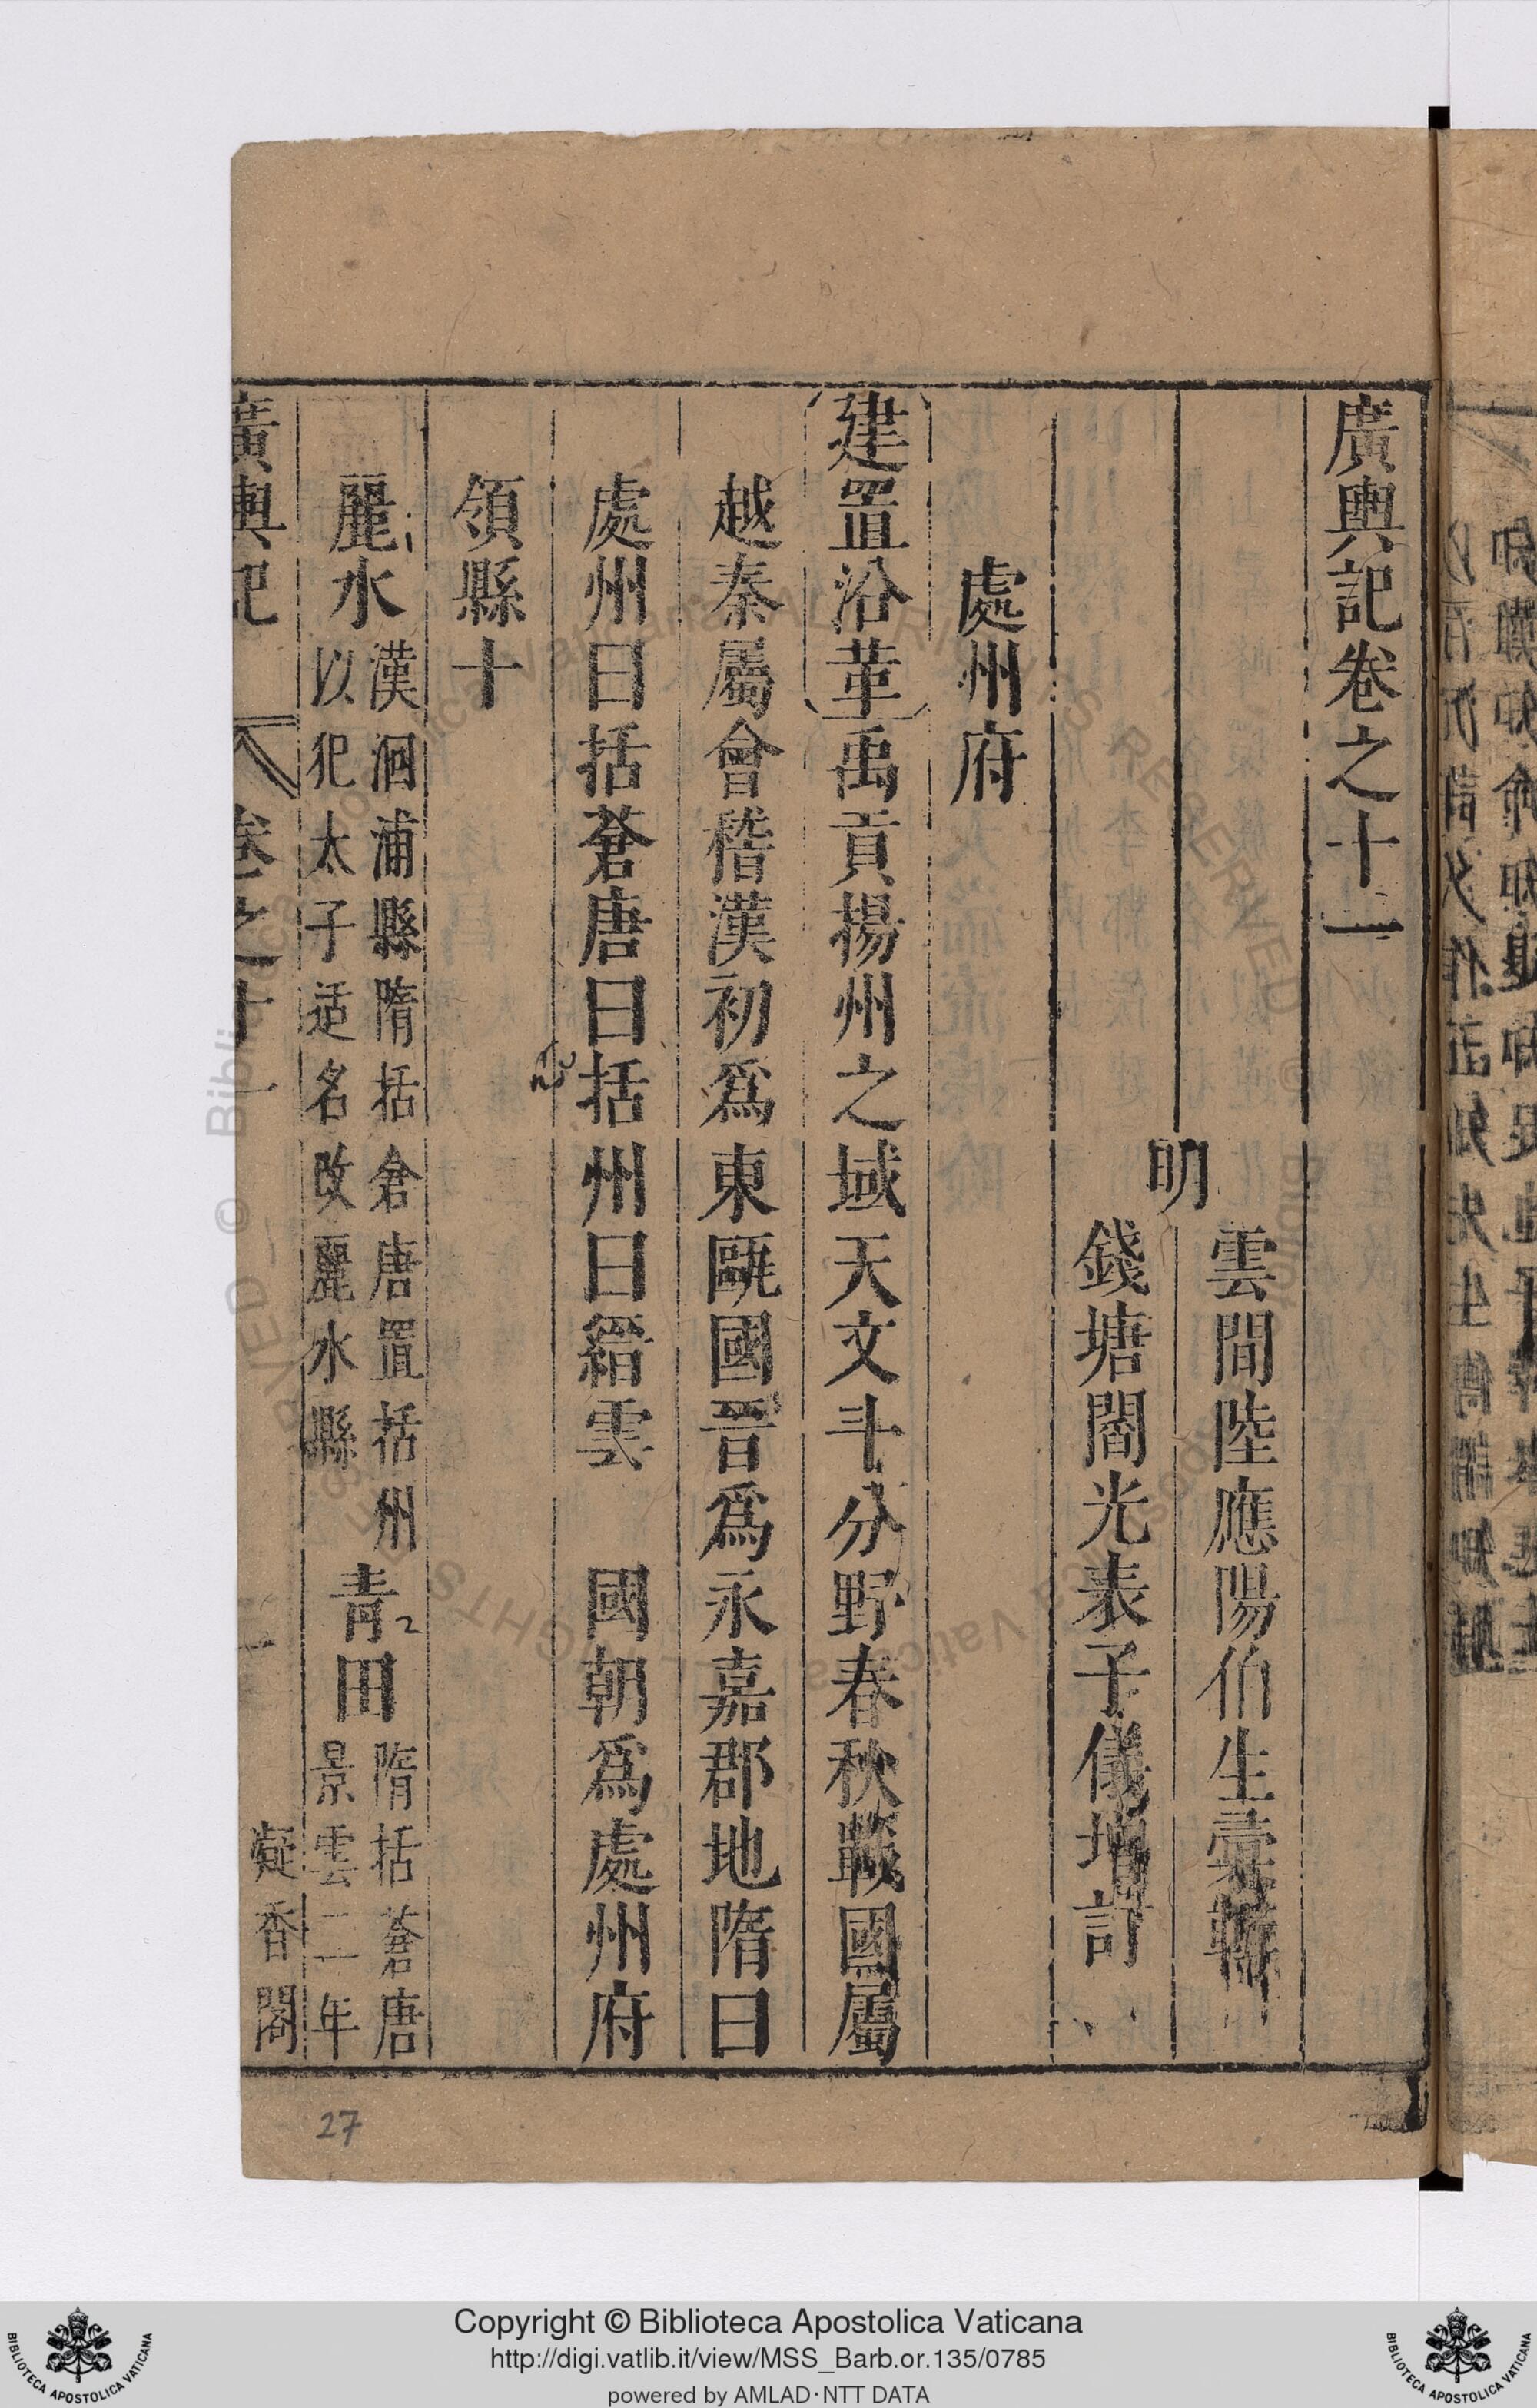 廣輿記卷之十一
明
雲間陸應陽伯生彙輯
錢塘閻光表子儀增訂
處州府
建置沿革禹貢揚州之域天文斗分野春秋戰國屬
越秦屬會稽漢初爲東甌國晉爲永嘉郡地隋曰
處州曰括蒼唐曰括州曰縉雲　國朝爲處州府
領縣十
麗水
漢洄浦縣隋括倉唐置括州
以犯太子适名改麗水縣
青田
隋括蒼唐
景雲二年
廣輿記　卷之十一　一　凝香閣
1
2
27
Copyright © Biblioteca Apostolica Vaticana
http://digi.vatlib.it/view/MSS_Barb.or.135/0785
powered by AMLAD·NTT DATA
BIBLIOTECA APOSTOLICA VATICANA
BIBLIOTECA APOSTOLICA VATICANA